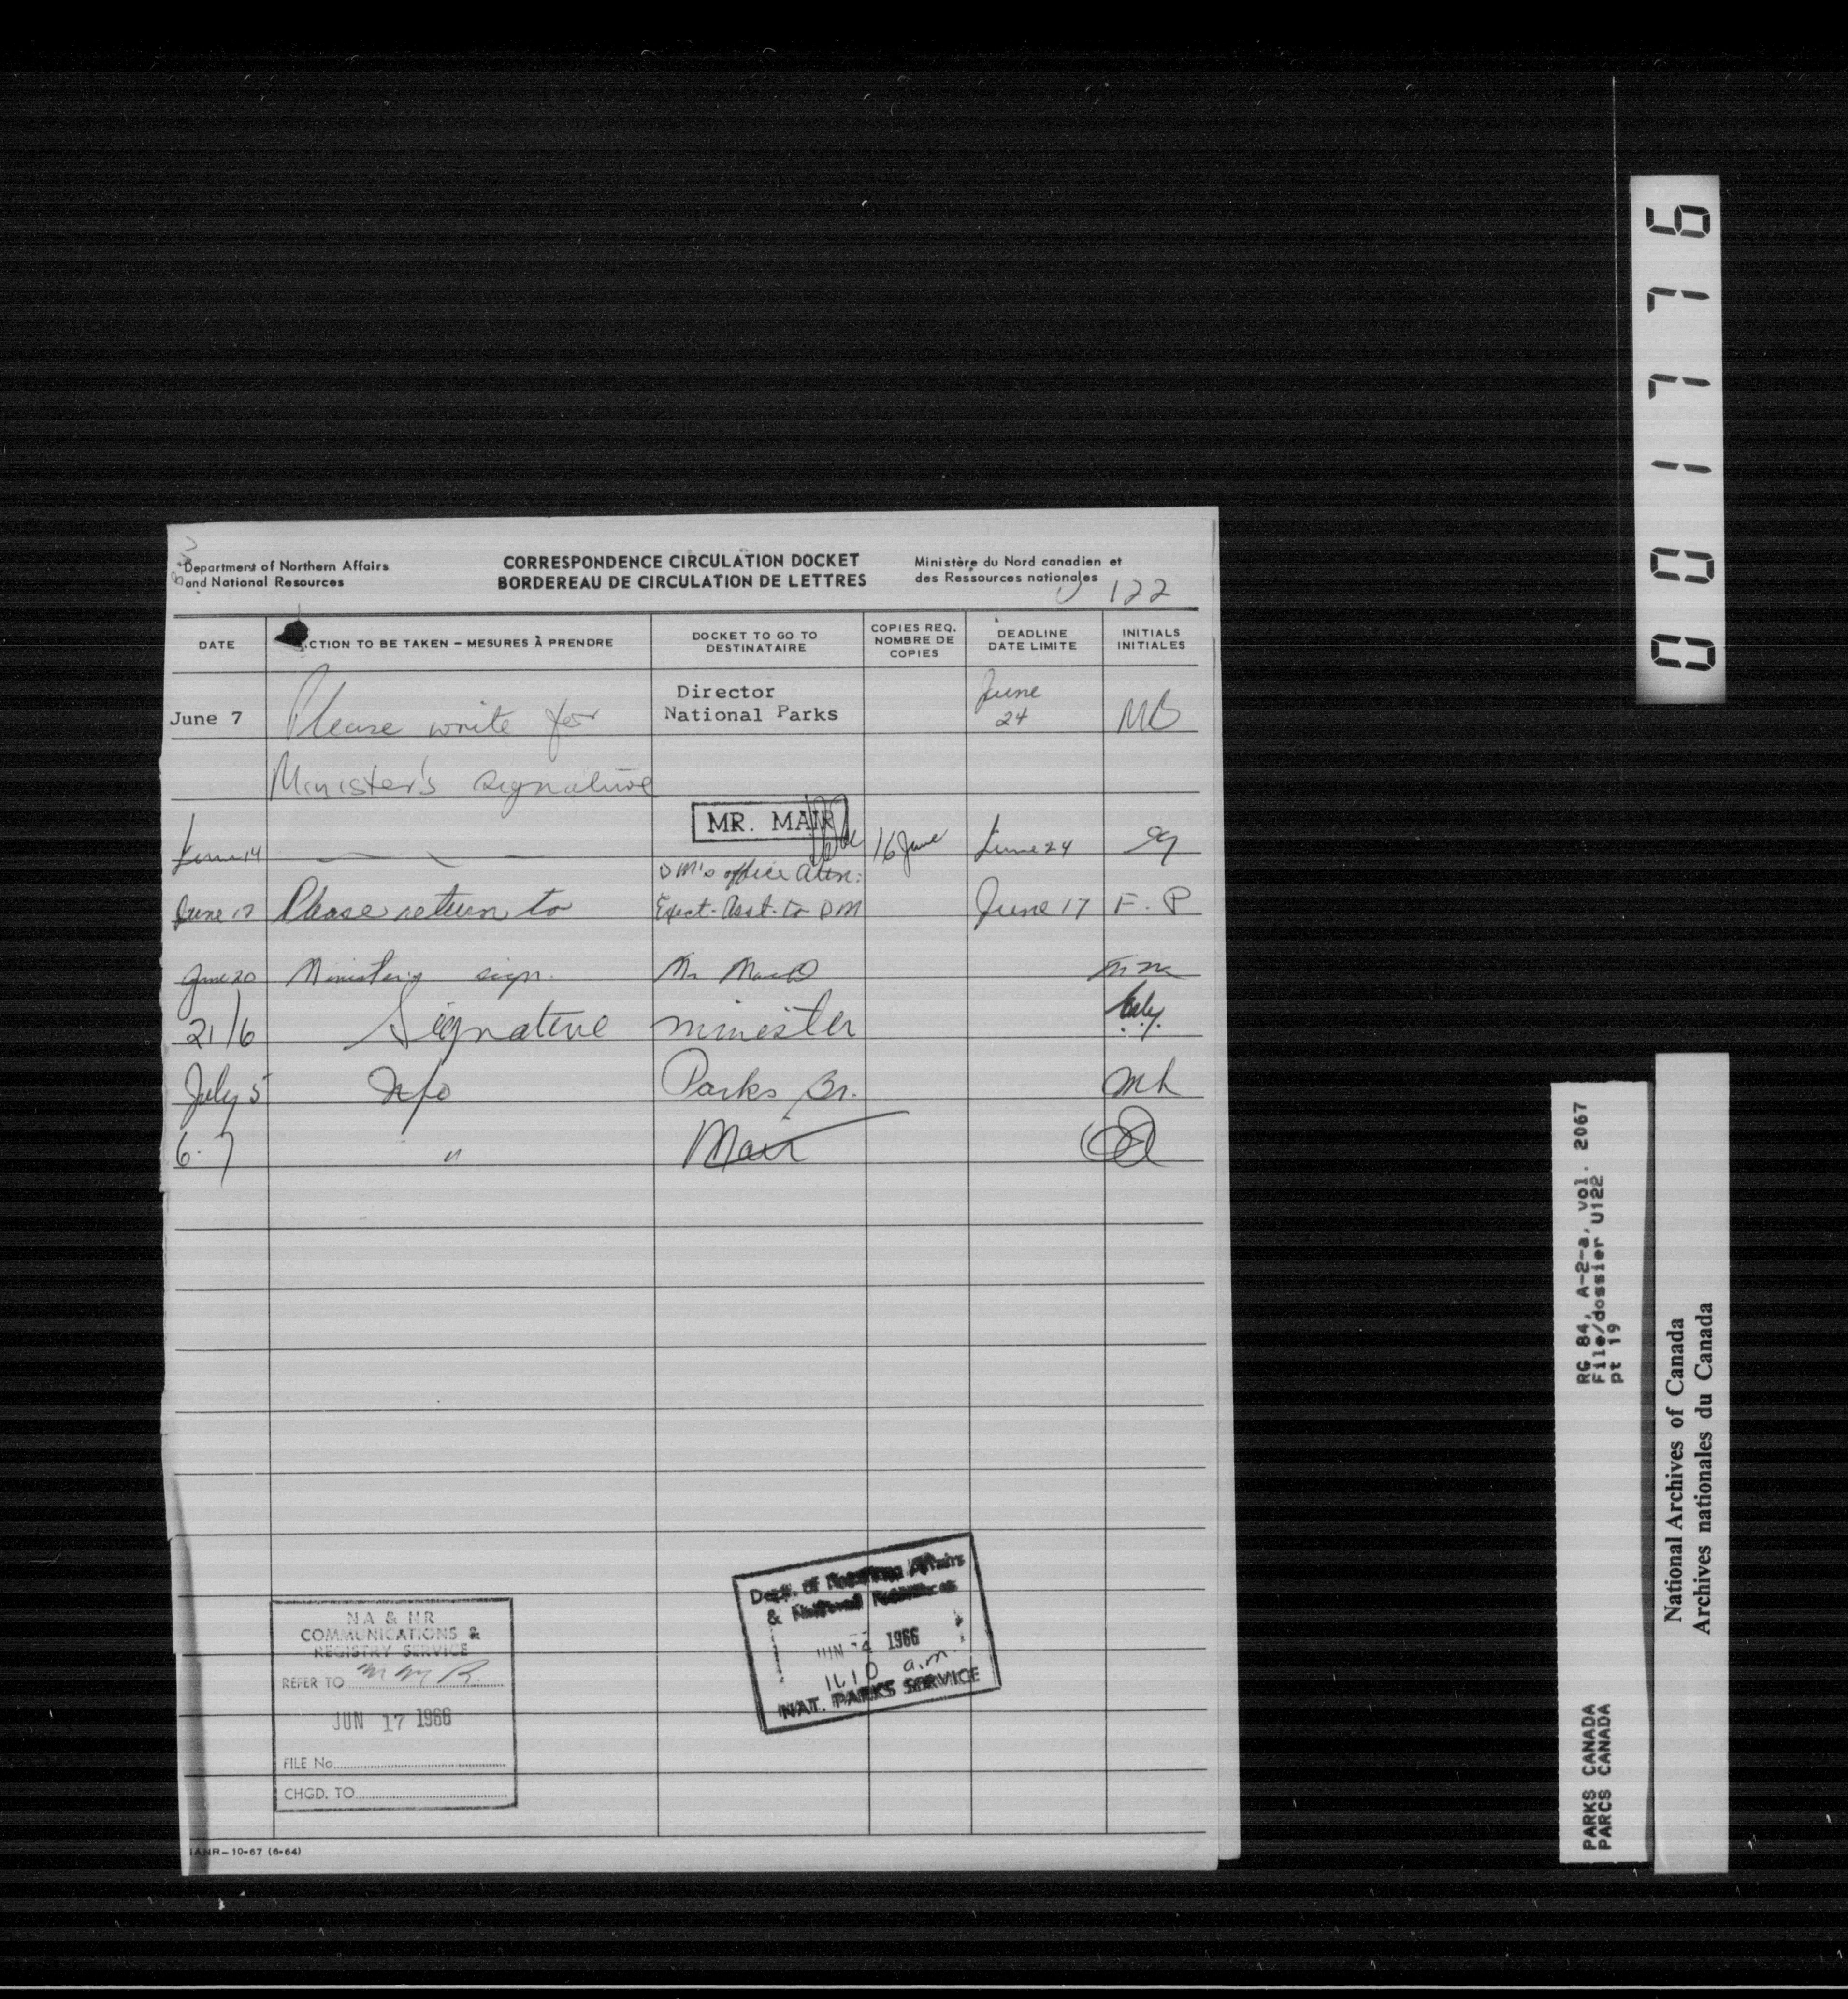 Department of Northern Affairs
and National Resources
CORRESPONDENCE CIRCULATION DOCKET
BORDEREAU DE CIRCULATION DE LETTRES
Ministère du Nord canadien et
des Ressources nationales
U 122
DATE
ACTION TO BE TAKEN – MESURES À PRENDRE
DOCKET TO GO TO
DESTINATAIRE
COPIES REQ.
NOMBRE DE
COPIES
DEADLINE
DATE LIMITE
INITIALS
INITIALES
June 7 Please write for Director National Parks June 24 MB
Minister's signature
MR. MAIR
June 14 16 June June 24
DM's office Attn:
June 17 Please return to Exect. Asst. to DM June 17 F. P
June 20 Minister's sign. Mr
21/6 Signature minister
July 5 Info Parks Br. mh
6.7 " Mair
Dept. of Northern Affairs
& National Resources
JUN 1966
a.m.
NAT. PARKS SERVICE
NA & NR
COMMUNICATIONS &
REGISTRY SERVICE
REFER TO
JUN 17 1966
FILE No.
CHGD. TO
NANR–10-67 (6-64)
001776
RG 84, A-2-a, vol. 2067
File/dossier U122
pt 19
PARKS CANADA
PARCS CANADA
National Archives of Canada
Archives nationales du Canada